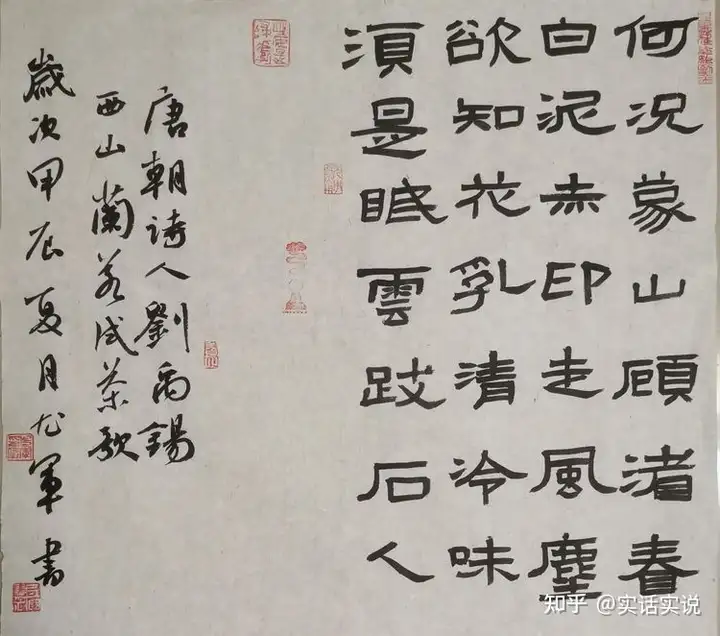 何况蒙山顾渚春
白泥赤印走風塵
欲知花乳清冷味
須是眠雲跂石人
唐朝诗人劉禹錫
西山蘭若试茶歌
歲次甲辰夏月尤軍書
知乎 @实话实说